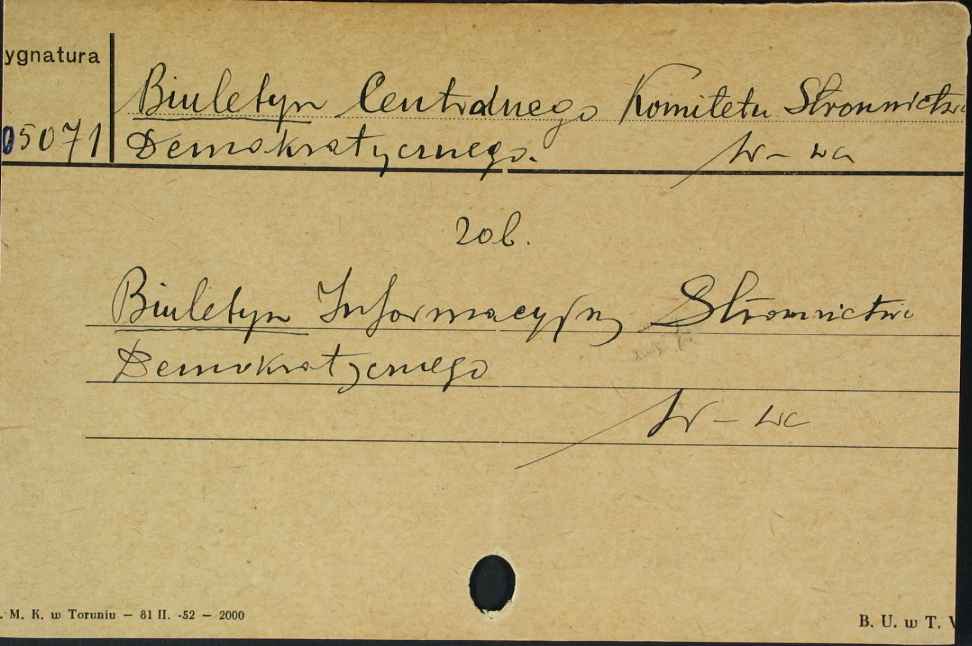 ygnatura
Biuletyn Centralnego Komitetu Stronnictwa
05071
Demokratycznego. W-wa
zob.
Biuletyn Informacyjny Stronnictwa
Demokratycznego
W-wa
. M. K. w Toruniu — 81 II. -52 — 2000
B. U. w T.